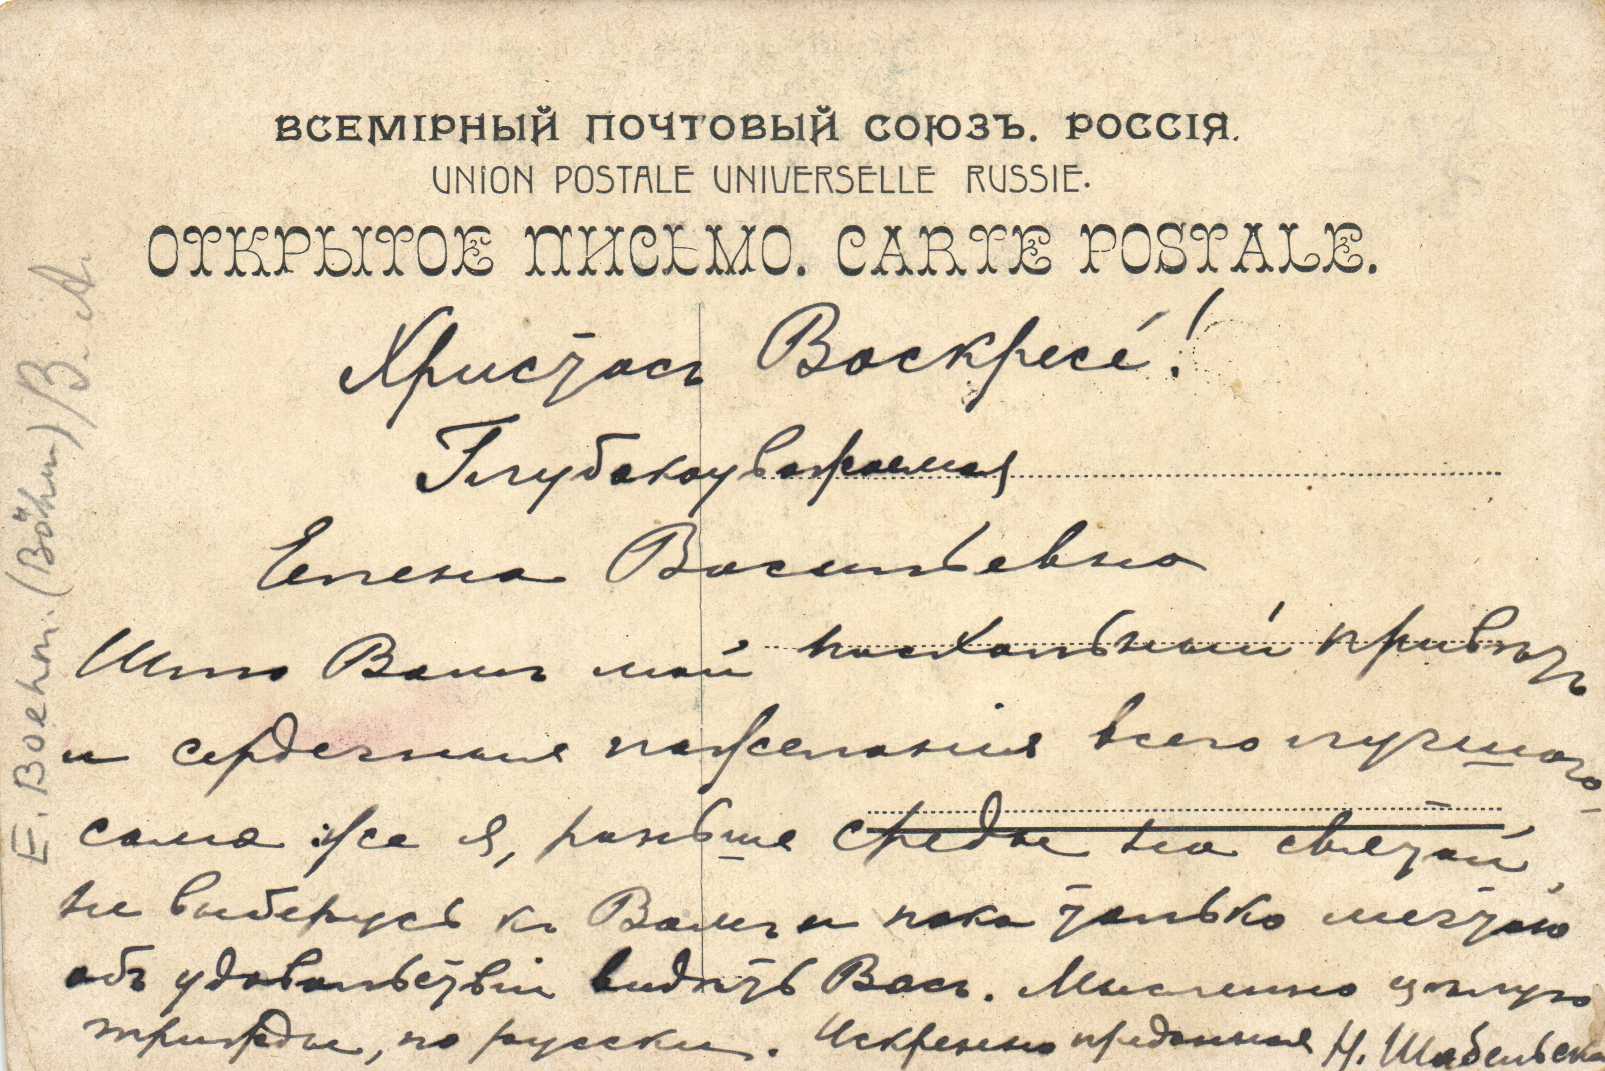 ВСЕМІРНЫЙ ПОЧТОВЫЙ СОЮЗЪ. РОССІЯ.
UNION POSTALE UNIVERSELLE RUSSIE.
ОТКРЫТОЕ ПИСЬМО. CARTE POSTALE.
Христосъ Воскресе́!
Глубокоуважаемая
Елена Васильевна
Шлю Вамъ мой пасхальный привѣтъ
и сердечныя пожеланія всего лучшаго
сама же я, раньше среды на святой,
не выберусь къ Вамъ и пока только мечтаю
объ удовольствіи видѣть Васъ. Мысленно цѣлую
трижды, по русски. Искренно преданная Н. Шабельска
E. Boehm. (Böhm) / B. A.